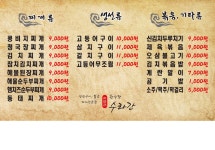 찌개류
콩비지찌개 9,000원
청국장찌개 9,000원
김치찌개 9,000원
참치김치찌개 9,000원
해물된장찌개 9,000원
해물순두부찌개 9,000원
햄치즈순두부찌개 9,000원
동태찌개 10,000원
생선류
고등어구이 10,000원
삼치구이 11,000원
갈치구이 13,000원
고등어무조림 11,000원
수라간
볶음, 기타류
신김치두루치기 9,000원
제육볶음 9,000원
오삼불고기 10,000원
계란말이 5,000원
공기밥 1,000원
소주/맥주/막걸리 5,000원